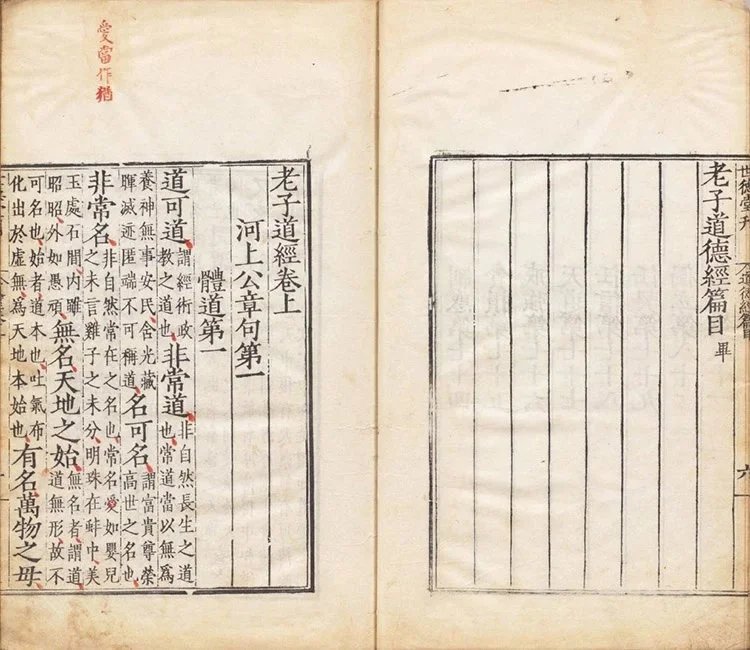 世德堂刊
道德經篇目
六
老子道德經篇目畢
愛當作猶
老子道經卷上
河上公章句第一
體道第一
道可道謂經術政教之道也非常道非自然長生之道也常道當以無爲
養神無事安民含光藏暉滅迹匿端不可稱道名可名謂富貴尊榮高世之名也
非常名非自然常在之名也常名愛如嬰兒之未言雞子之未分明珠在蚌中美
玉處石間內雖昭昭外如愚頑無名天地之始無名者謂道道無形故不
可名也始者道本也吐氣布化出於虛無爲天地本始也有名萬物之母